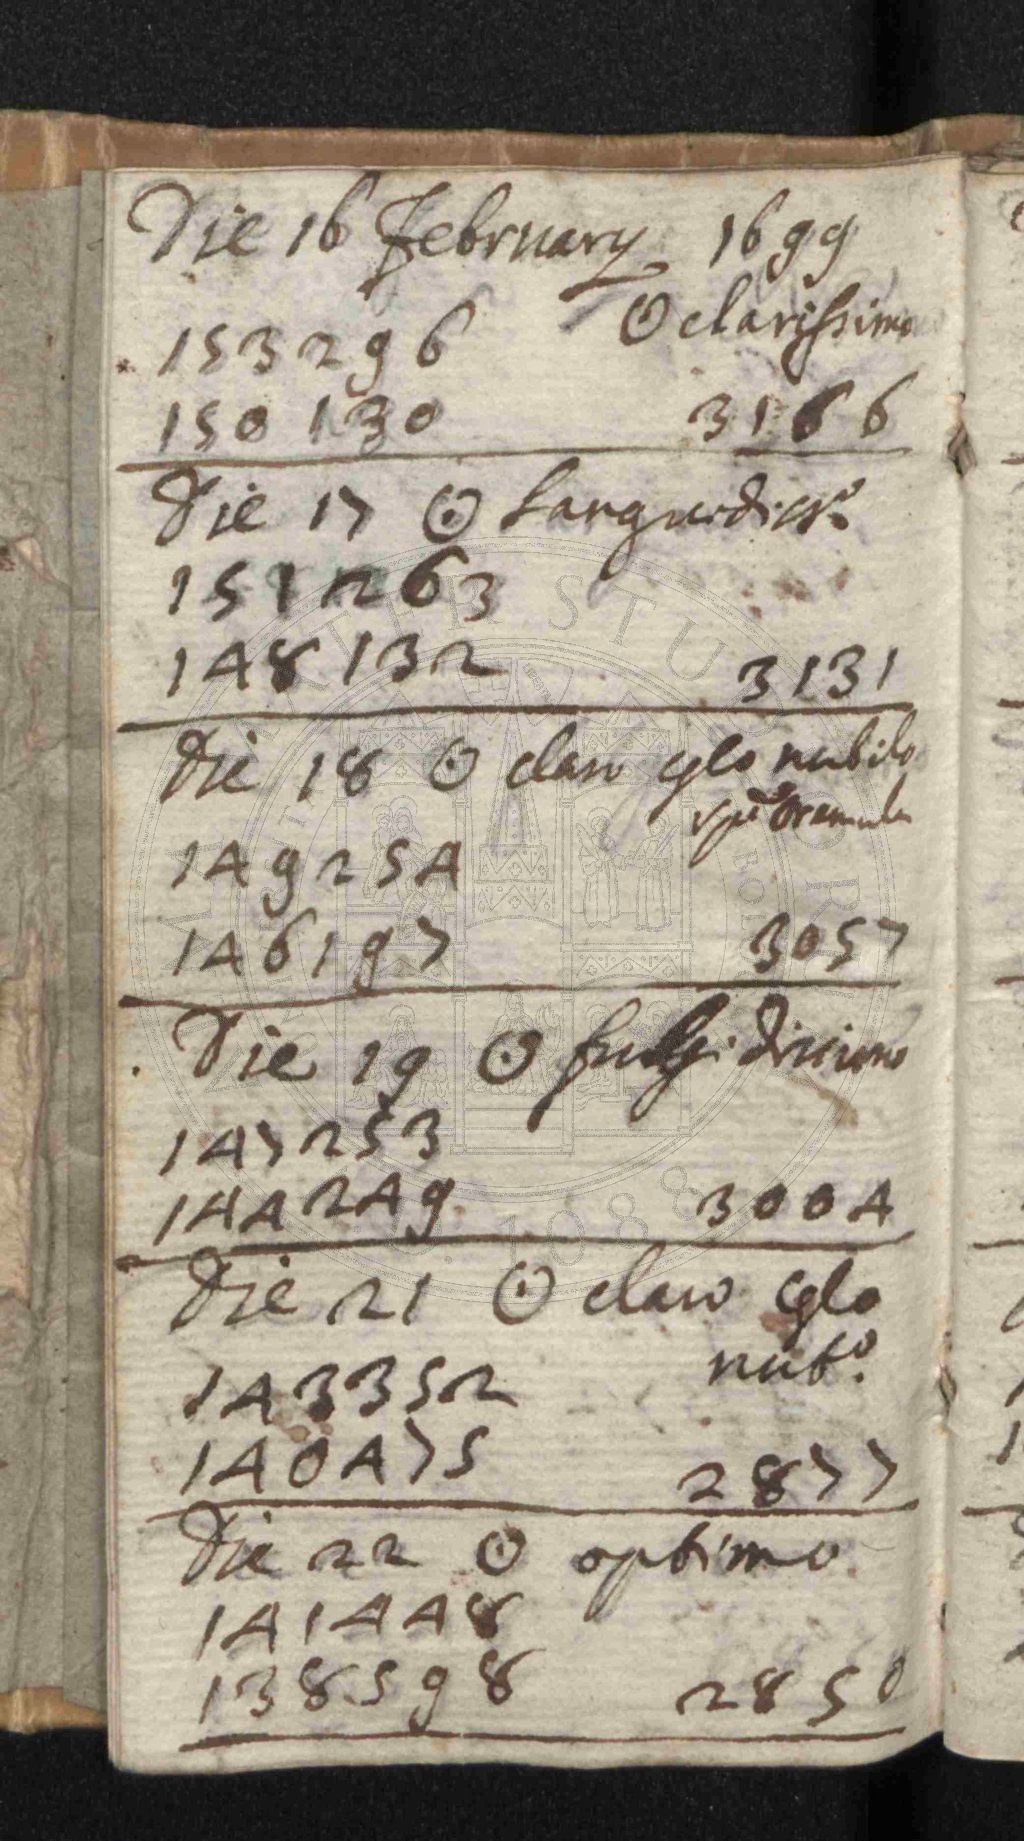 Die 16 February 1699
☉ clarissimo
153296
150130 3166
Die 17 ☉ Languidissº
151263
148132 3131
Die 18 ☉ claro cęlo nubilo
149254
146197 3057
Die 19 ☉ fulgidissimo
147253
144249 3004
Die 21 ☉ claro cęlo
nubº.
143352
140475 2877
Die 22 ☉ optimo
141448
138598 2850
ALMA MATER STUDIORUM
1088